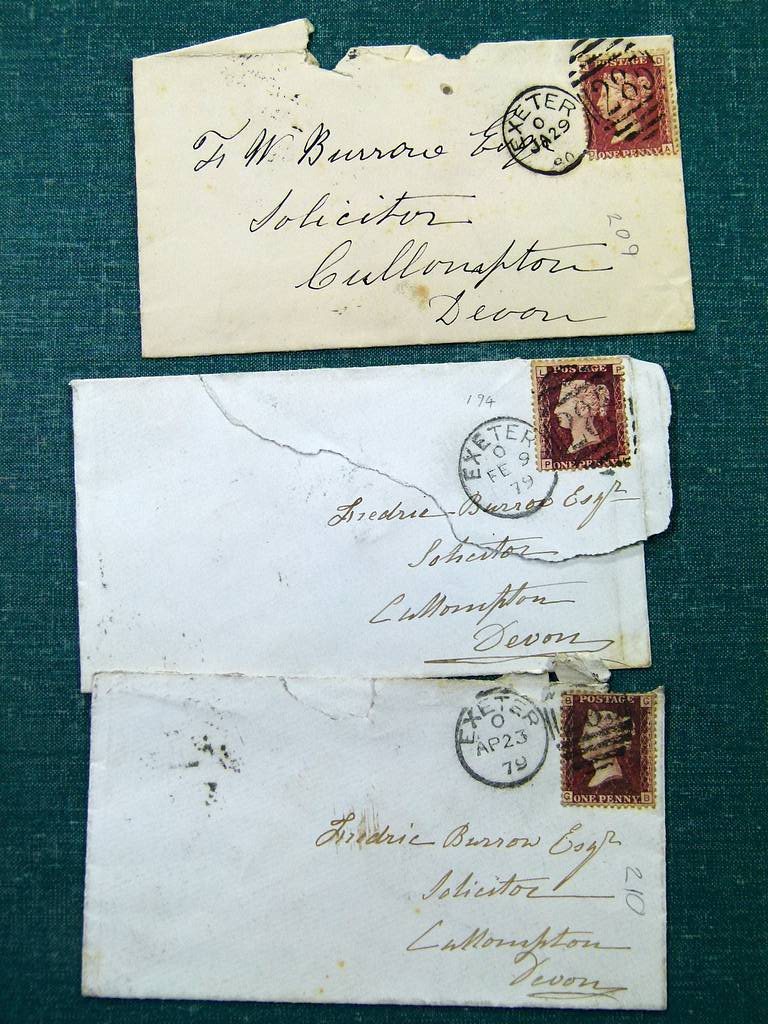 POSTAGE
285
ONE PENNY
EXETER
O
JA 29
80
Fr W Burrow Esq
Solicitor
Cullompton
Devon
209
POSTAGE
L P
P L
ONE PENNY
194
EXETER
O
FE 9
79
Fredric Burrow Esqr
Solicitor
Cullompton
Devon
POSTAGE
B G
G B
ONE PENNY
EXETER
O
AP 23
79
Fredric Burrow Esqr
Solicitor
Cullompton
Devon
210